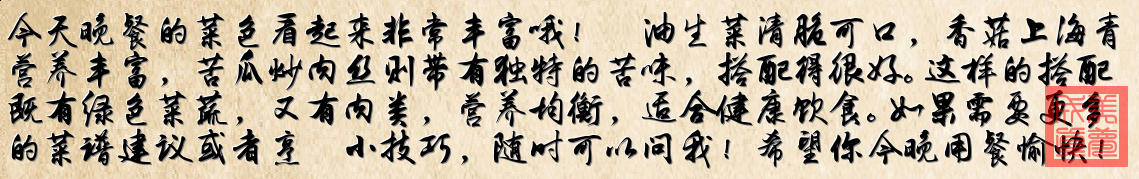 今天晚餐的菜色看起来非常丰富哦! 油生菜清脆可口,香菇上海青
营养丰富,苦瓜炒肉丝则带有独特的苦味,搭配得很好。这样的搭配
既有绿色菜蔬,又有肉类,营养均衡,适合健康饮食。如果需要更多
的菜谱建议或者烹 小技巧,随时可以问我!希望你今晚用餐愉快!